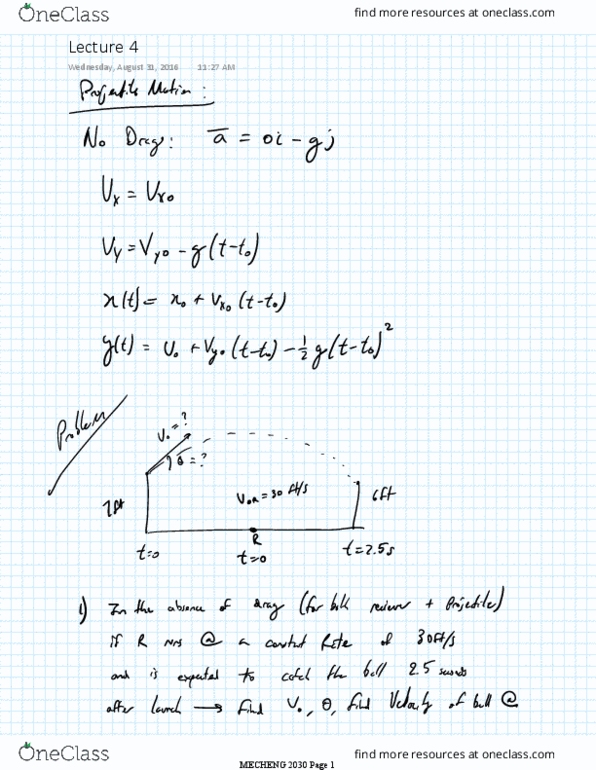 OneClass
find more resources at oneclass.com
Lecture 4
Wednesday, August 31, 2016 11:27 AM
Projectile Motion :
No Drag: a̅ = 0i - gj
Vx = Vx0
Vy = Vy0 - g(t-t0)
x(t) = x0 + Vx0 (t-t0)
y(t) = y0 + Vy0 (t-t0) - ½ g(t-t0)²
Problem
V0 = ?
θ = ?
7ft
V0R = 30 ft/s
6ft
R
t=0
t=0
t=2.5s
1) In the absence of drag (for both receiver + Projectile)
if R runs @ a constant Rate of 30ft/s
and is expected to catch the ball 2.5 seconds
after launch → find V0, θ, find Velocity of ball @
OneClass
find more resources at oneclass.com
MECHENG 2030 Page 1